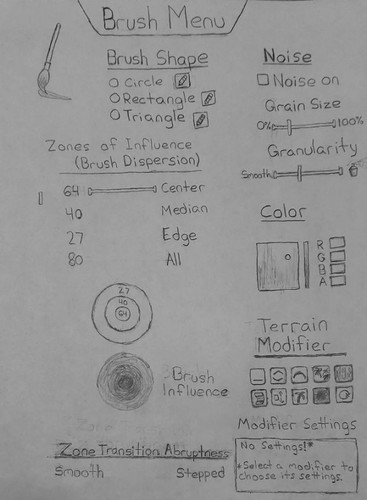 Brush Menu
Brush Shape
Circle
Rectangle
Triangle
Zones of Influence
(Brush Dispersion)
64 Center
40 Median
27 Edge
80 All
27
40
64
Brush
Influence
Zone Transition Abruptness
Smooth Stepped
Noise
Noise on
Grain Size
0% 100%
Granularity
Smooth
Color
R
G
B
A
Terrain
Modifier
Modifier Settings
No Settings!*
*Select a modifier to
choose its settings.